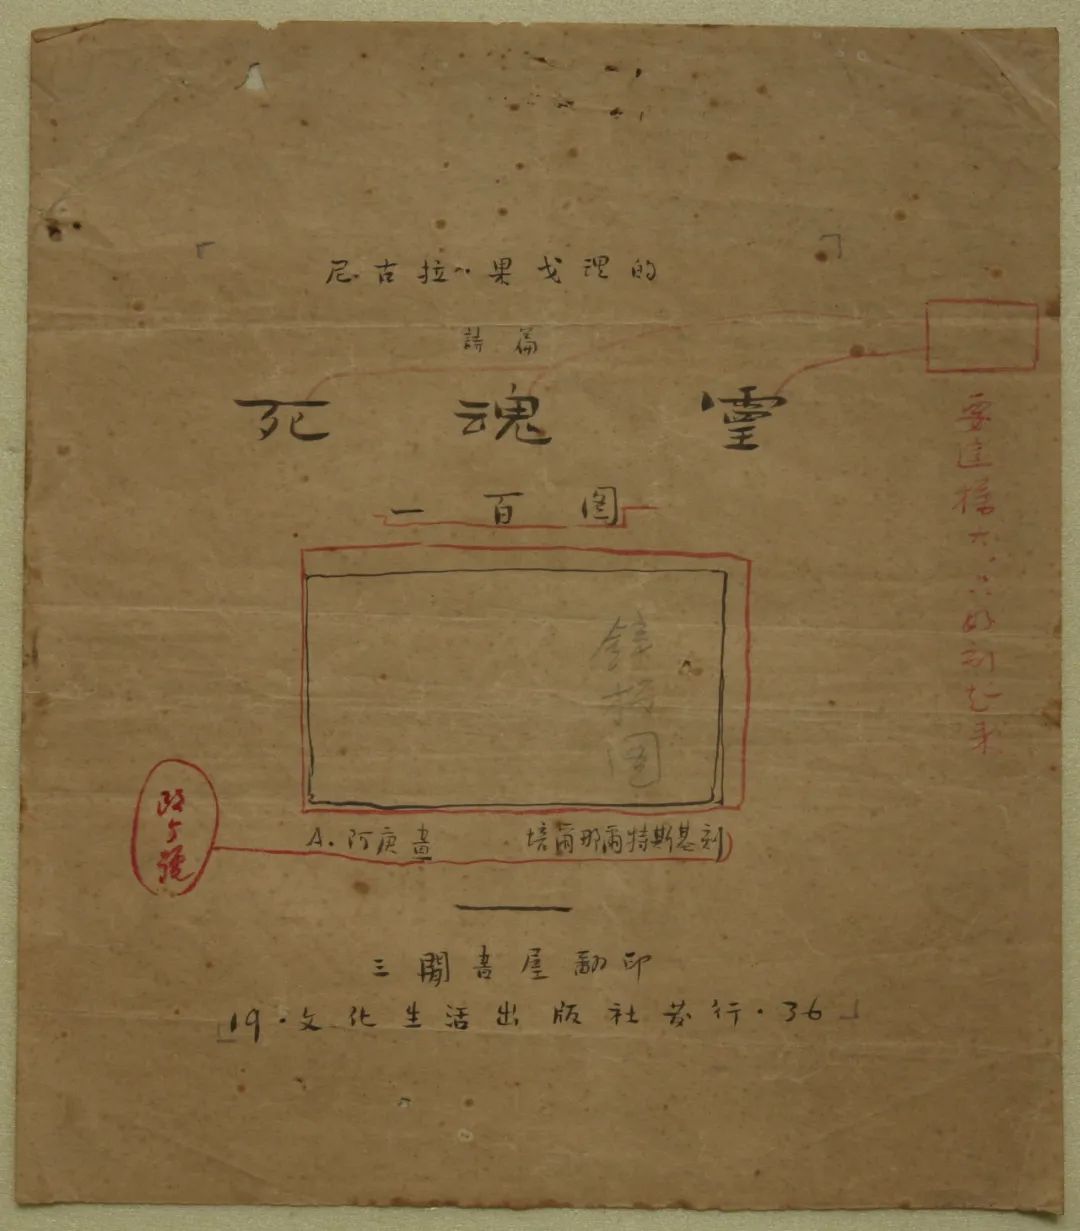 尼古拉·果戈理的
詩篇
死魂靈
一百图
鋅板图
A. 阿庚畫 培爾那爾特斯基刻
三閒書屋翻印
19·文化生活出版社发行·36
要這樣大,只好刻起来
改5號